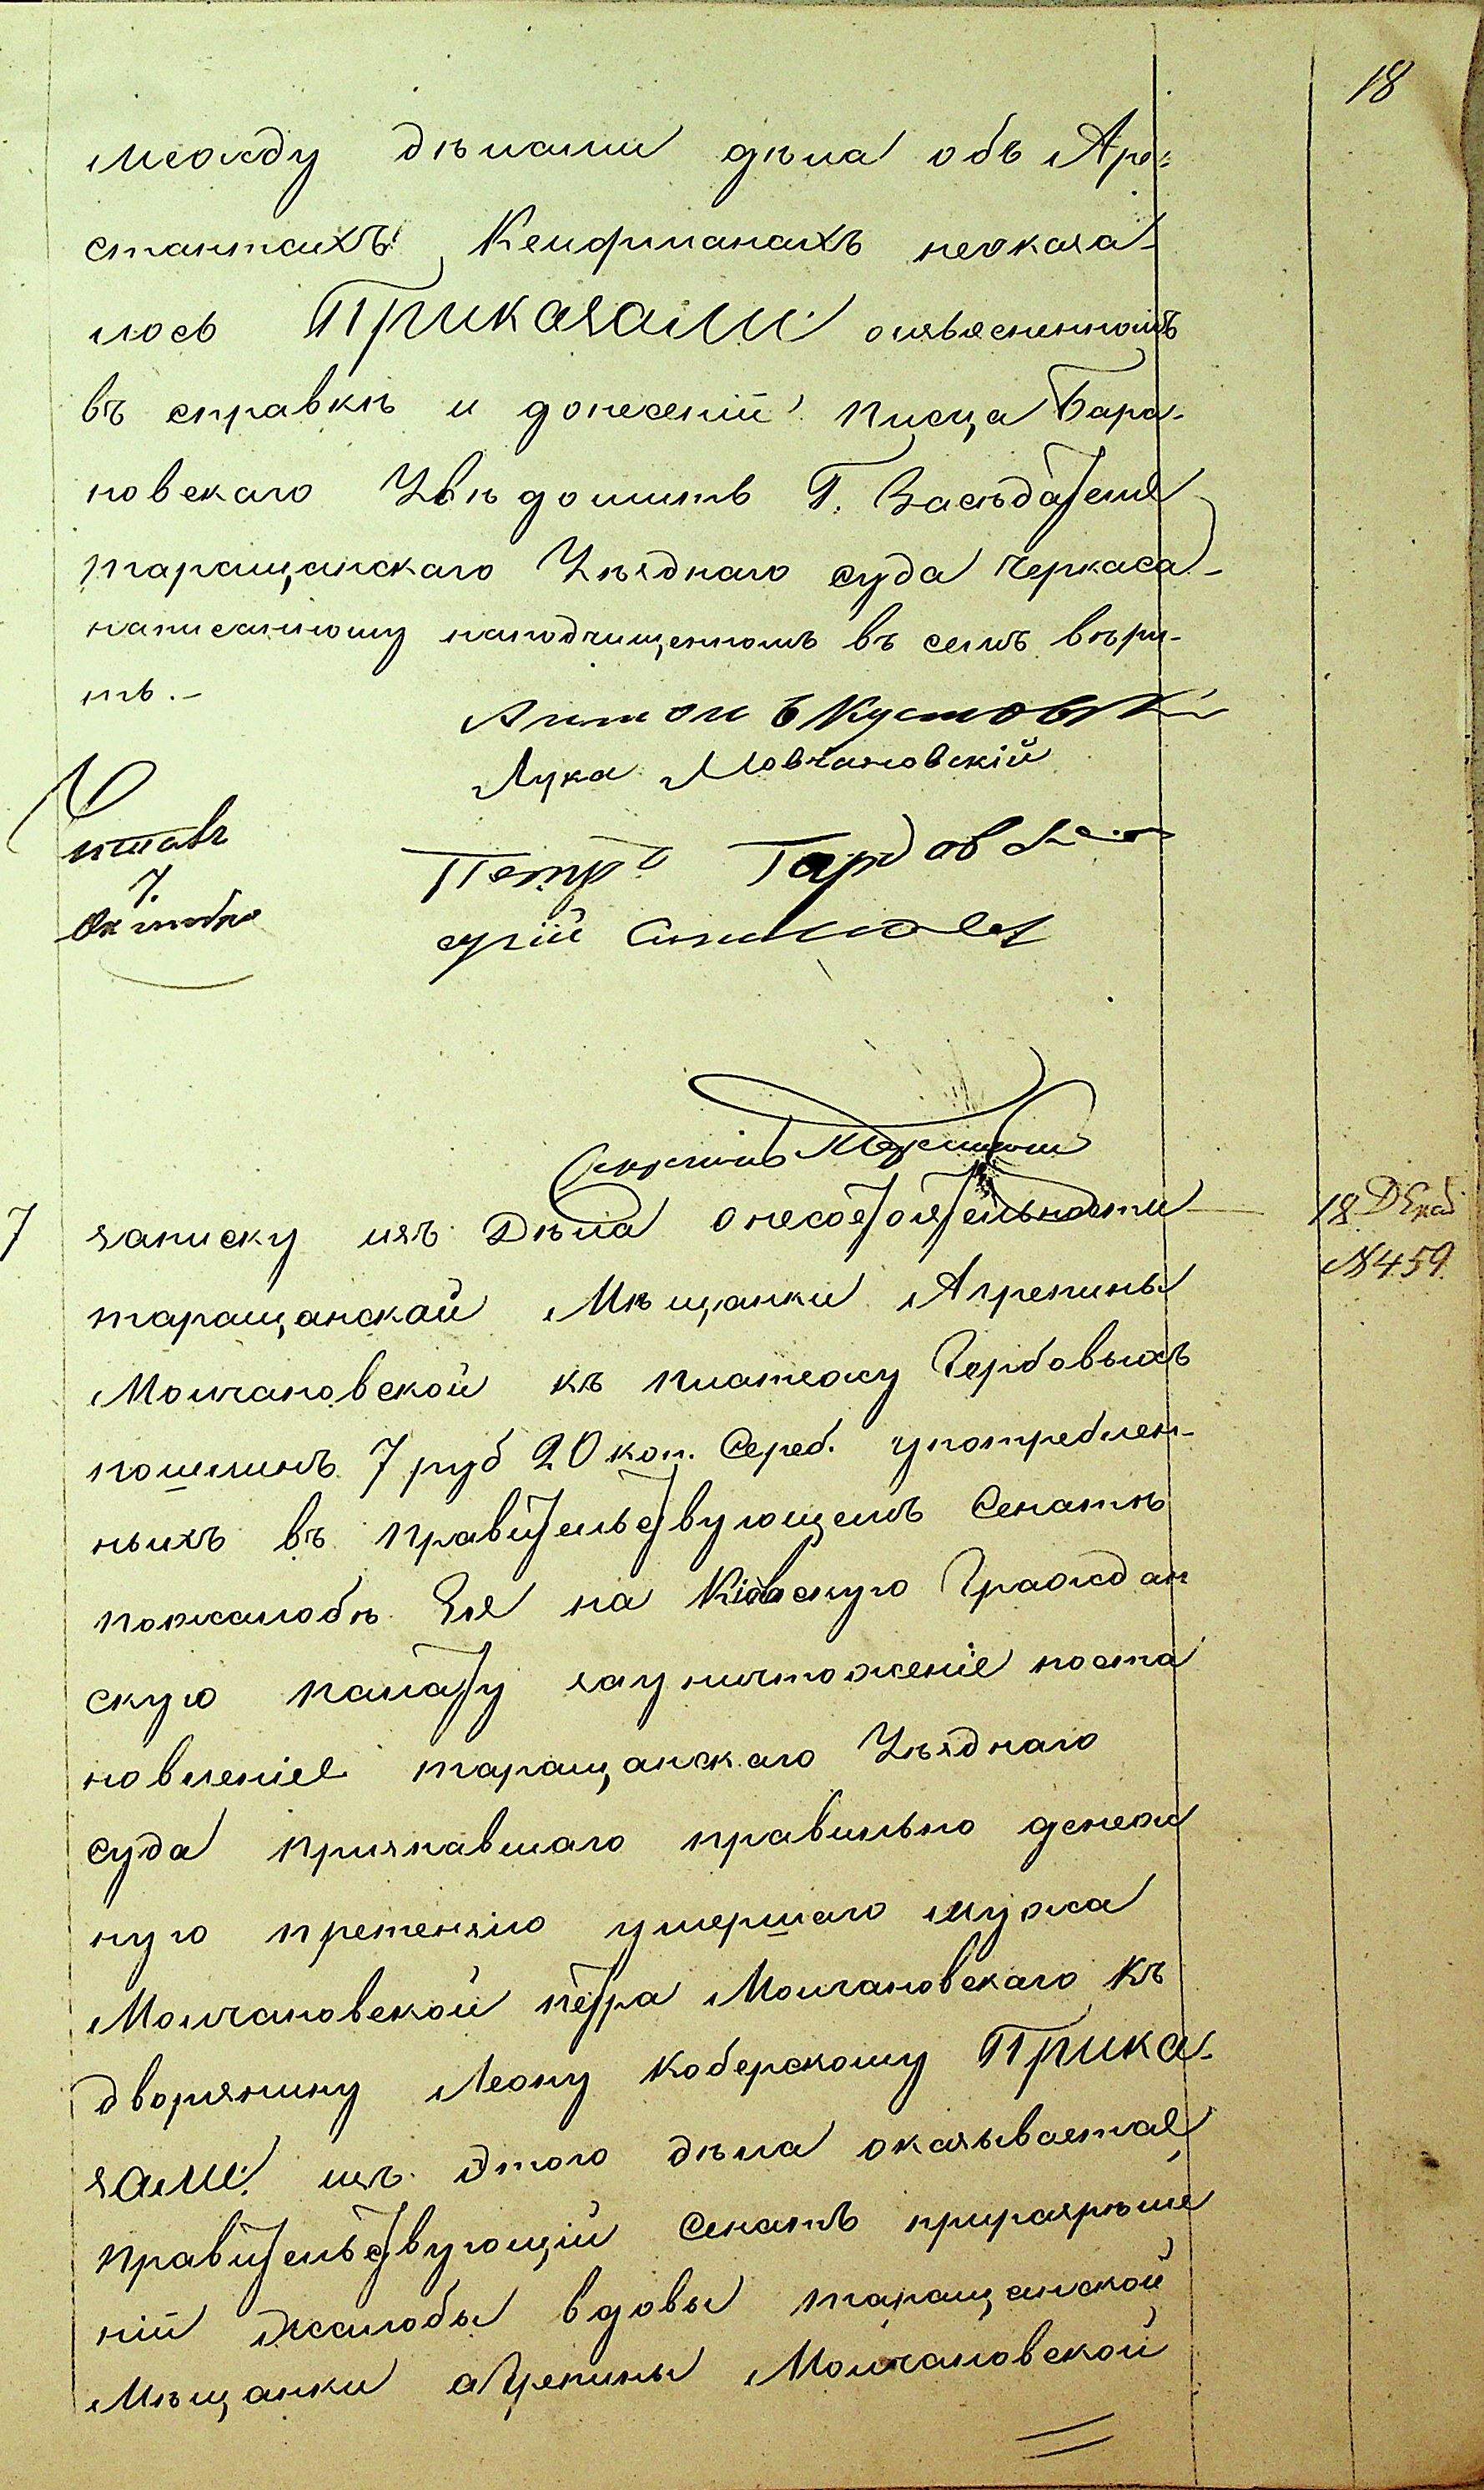 18
между дѣлами дѣла объ Аре-
стантахъ Кейфманахъ неоказа-
лось Приказали: о изъясненномъ
въ справкѣ и донесеніи писца Бара-
новскаго Увѣдомить Г. Засѣдателя
таращанскаго Уѣзднаго суда Черкаса
написанному наподчищенномъ въ семъ вѣри-
ть.-
Антонъ Кустовскій
Лука Мовчановскій
Читалъ
7.
Октября
Петръ
Секретарь
7 записку изъ Дѣла о несостоятельности 18 Декаб
таращанской Мѣщанки Агрепины №459.
Молчановской къ платежу Гербовыхъ
пошлинъ 7 руб 20 коп. Сереб. употреблен-
ныхъ въ правительствующемъ Сенатѣ
пожалобѣ Ея на Кіевскую Граждан
скую палату зауничтоженіе поста
новленіе таращанскаго Уѣзднаго
суда признавшаго правильно денеж
ную претензію умершаго мужа
Молчановской петра Молчановскаго къ
дворянину Леону Коберскому Прика-
зали: изъ дѣтого дѣла оказывается,
правительствующій Сенатъ приразрѣше
ніи жалобы вдовы таращанской
Мѣщанки агрепины Молчановской